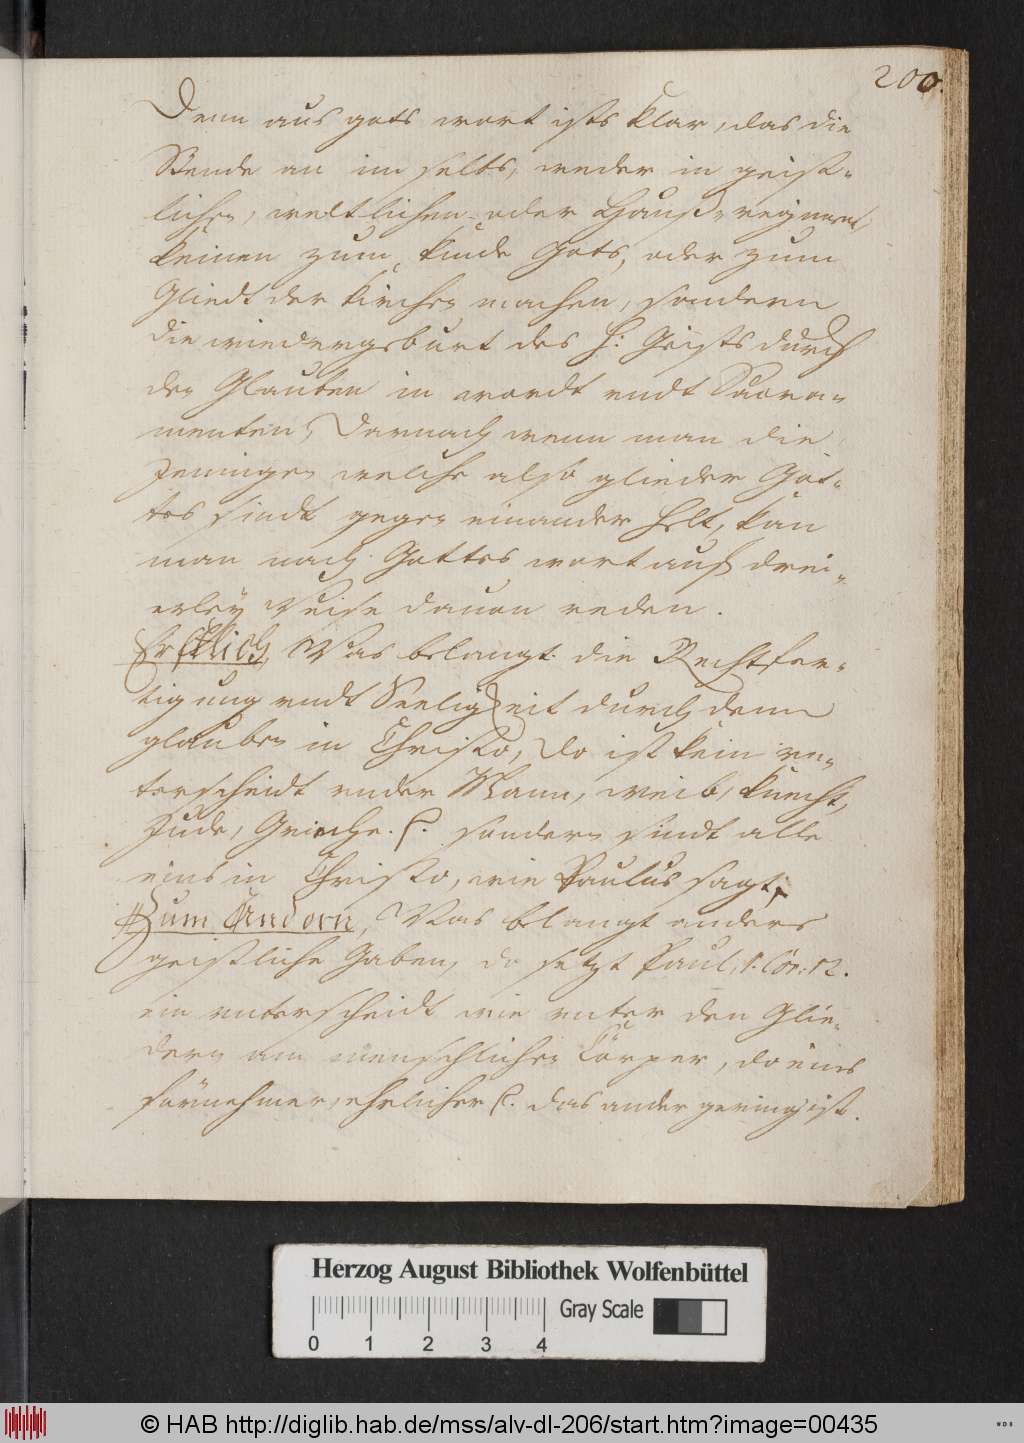 200.
Denn aus gots wort ists klar, das die
Stende an im selbs, weder in geist-
lichen, weltlichen oder Hauß-regiment,
keinen zum kinde Gots, oder zum
Gliedt der Kirchen machen, sondern
die wiedergeburt des H: Geists durch
den Glauben in wordt undt Sacra-
menten, Darnach wenn man die
Jenningen welche also glieder Got-
tes sindt gegen einander helt, kan
man nach Gottes wort auf drei-
erley Weise dauon reden.
Erstlich, Was belangt die Rechtfer-
tigung undt Seeligkeit durch denn
glauben in Christo, do ist kein vn-
terscheidt vnder Mann, weib, knecht,
Jude, Grieche. p. sondern sindt alle
eins in Christo, wie Paulus sagt,
Zum Andern, Was belangt anders
geistliche Gaben, do setzt Paul, 1. Cor: 12.
ein vnterscheidt wie vnter den Glie-
dern am menschlichen Cörper, do eins
förnehmer, ehrlicher p. das ander gering ist.
Herzog August Bibliothek Wolfenbüttel
Gray Scale
0 1 2 3 4
© HAB http://diglib.hab.de/mss/alv-dl-206/start.htm?image=00435